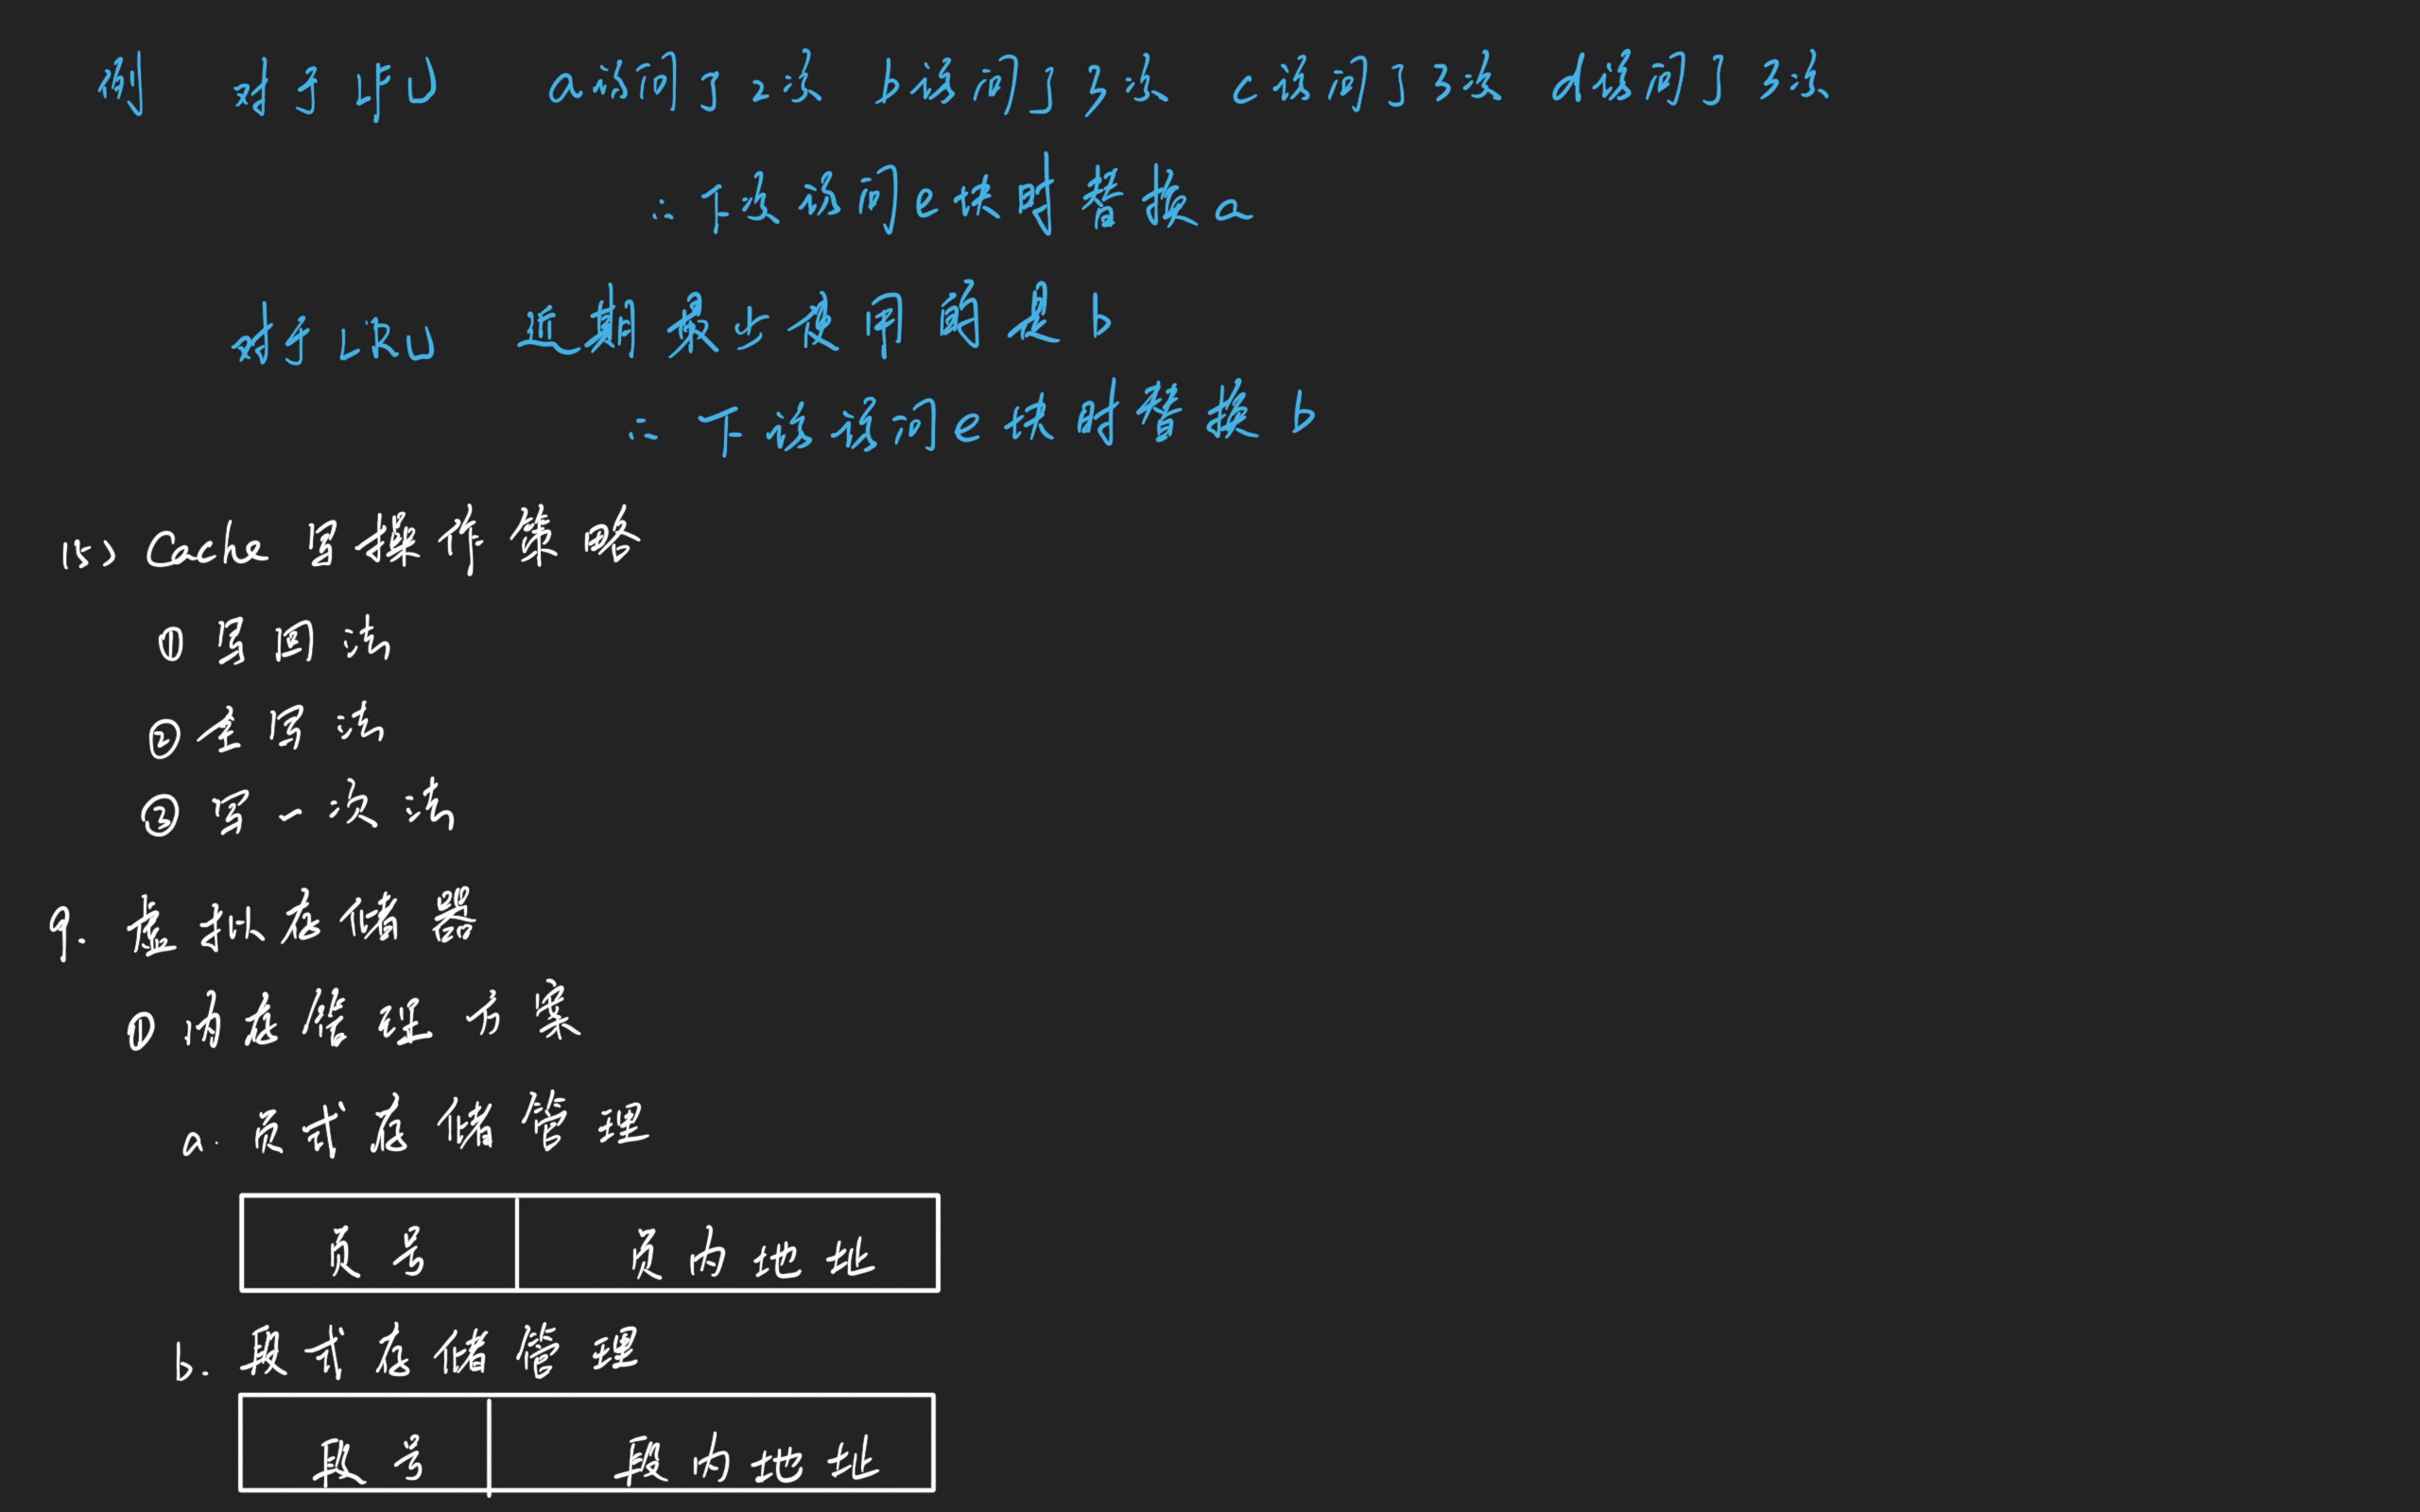 例 对于LFU a访问了2次 b访问了3次 c访问了3次 d访问了3次
∴下次访问e块时替换a
对于LRU 近期最少使用的是b
∴下次访问e块时替换b
(5) Cache写操作策略
①写回法
②全写法
③写一次法
9. 虚拟存储器
①内存管理方案
a. 页式存储管理
页号 页内地址
b. 段式存储管理
段号 段内地址